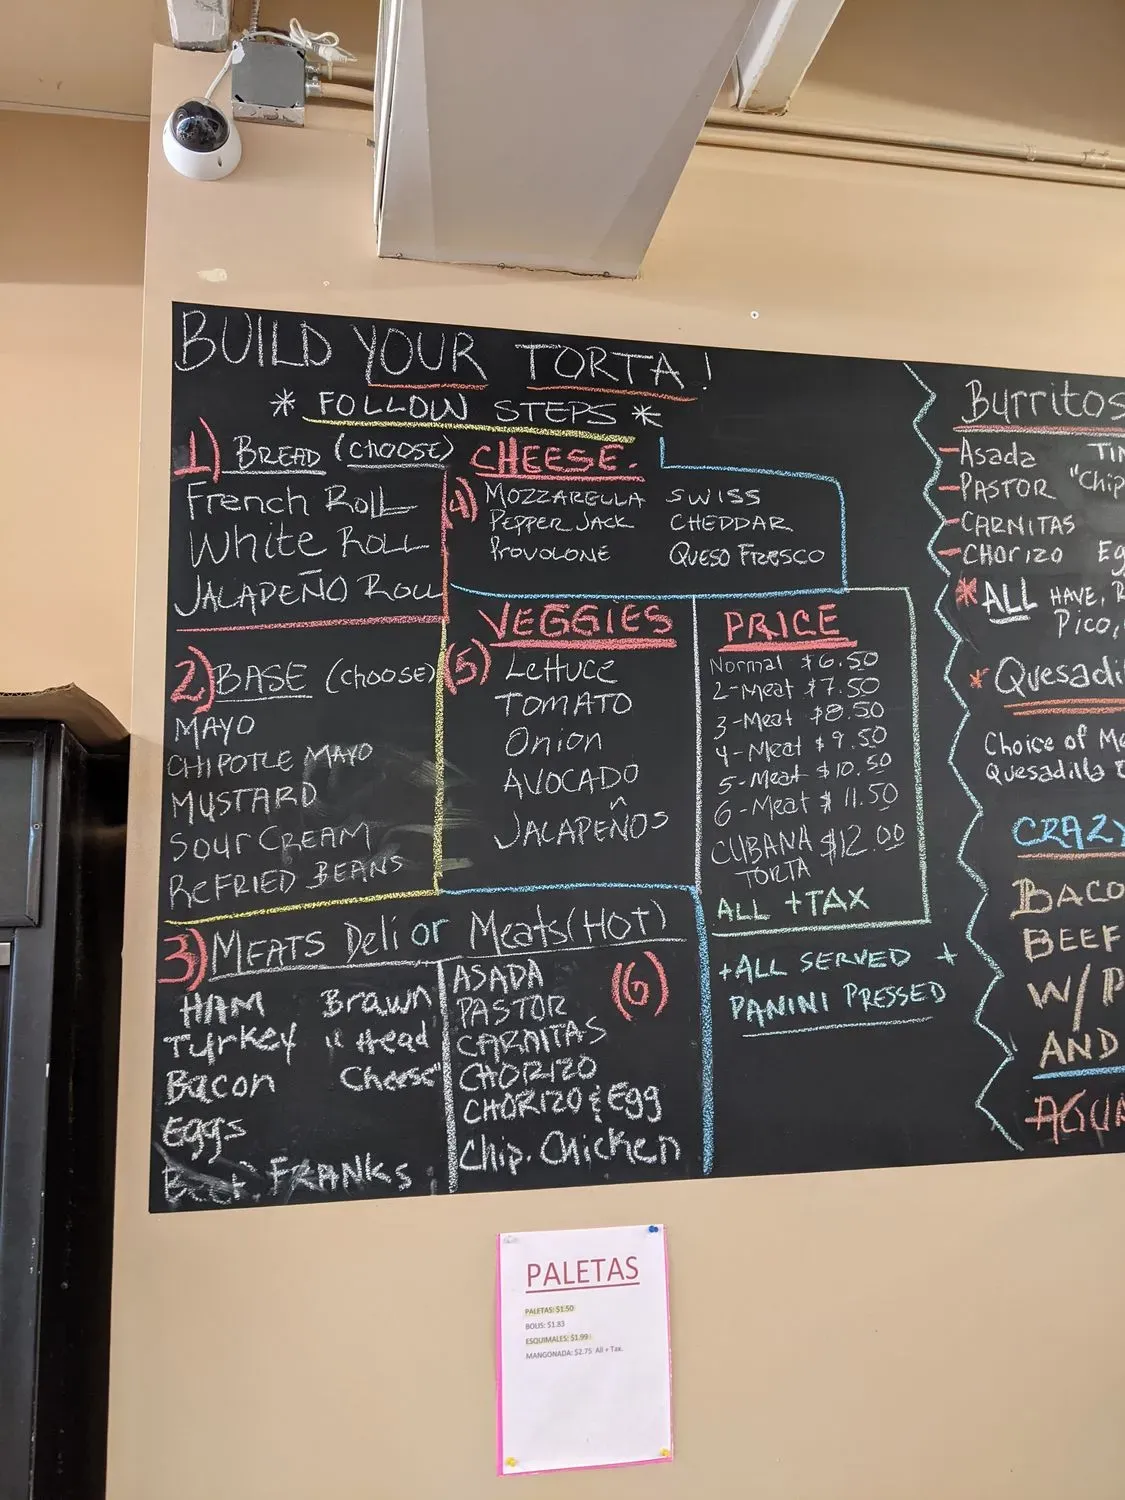 BUILD YOUR TORTA!
* FOLLOW STEPS *
1) BREAD (CHOOSE)
French Roll
White Roll
JALAPEÑO Roll
2) BASE (CHOOSE)
MAYO
CHIPOTLE MAYO
MUSTARD
Sour CREAM
REFRIED BEANS
3) MEATS Deli or Meats (HOT)
HAM
Turkey
Bacon
Eggs
Beef FRANKS
Brawn
"Head
Cheese"
(6)
ASADA
PASTOR
CARNITAS
CHORIZO
CHORIZO & Egg
Chip. Chicken
CHEESE.
4) MOZZARELLA SWISS
PEPPER JACK CHEDDAR
PROVOLONE QUESO FRESCO
VEGGIES
(5) Lettuce
TOMATO
Onion
AVOCADO
JALAPEÑOS
PRICE
Normal $6.50
2-Meat $7.50
3-Meat $8.50
4-Meat $9.50
5-Meat $10.50
6-Meat $11.50
CUBANA $12.00
TORTA
ALL +TAX
+ALL SERVED +
PANINI PRESSED
Burritos
-Asada
-PASTOR "Chip
-CARNITAS
-CHORIZO
* ALL HAVE,
PICO,
* Quesadil
Choice of Me
Quesadilla
CRAZY
BACO
BEEF
W/ P
AND
AGUA
PALETAS
PALETAS: $1.50
BOLIS: $1.83
ESQUIMALES: $1.99
MANGONADA: $2.75 All + Tax.